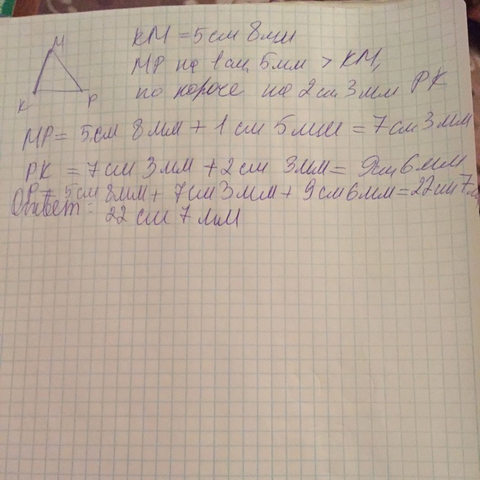 М
К
Р
КМ = 5 см 8 мм
МР на 1 см 5 мм > КМ,
но короче на 2 см 3 мм РК
МР = 5 см 8 мм + 1 см 5 мм = 7 см 3 мм
РК = 7 см 3 мм + 2 см 3 мм = 9 см 6 мм
Р = 5 см 8 мм + 7 см 3 мм + 9 см 6 мм = 22 см 7 м
Ответ: 22 см 7 мм